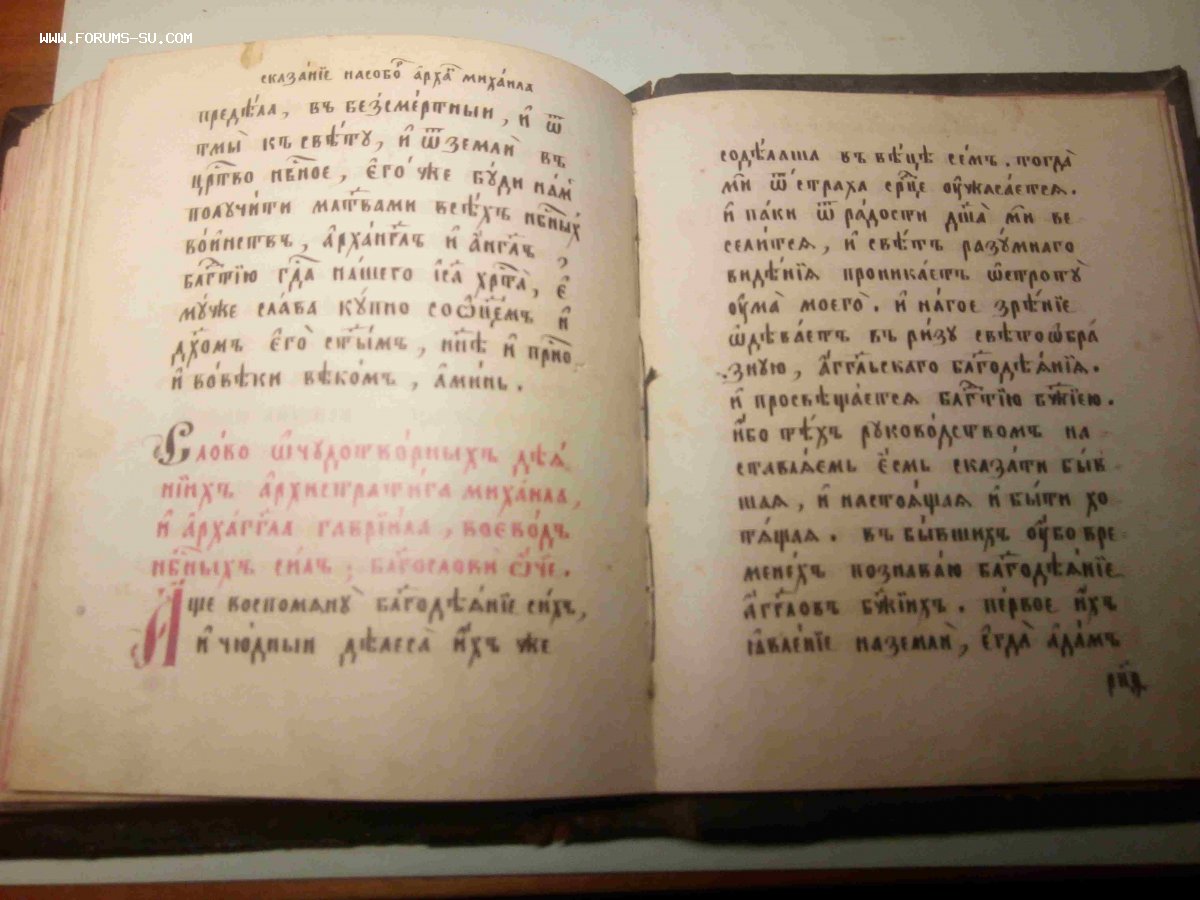 WWW.FORUMS-SU.COM
сказа́нїе насобо́ръ а҆рха҃г михаи́ла
преде́ла, въ безсме́ртныи, и҆ ѿ
тмы̀ къ свѣ́ту, и҆ ѿземлѝ въ
црⷭ҇тво нбⷭ҇ное, є҆го́ же бу́ди на́мъ
получи́ти мл҃твами всѣ́хъ нбⷭ҇ныхъ
во́инствъ, а҆рха́нг҃лъ и҆ а҆́нг҃лъ,
блгⷣтїю гдⷭ҇а на́шего і҆с҃а хрⷭ҇та̀, є҆
му́же сла́ва ку́пно соѻ҆ц҃е́мъ и҆
дх҃омъ є҆го̀ ст҃ы́мъ, нн҃ѣ и҆ при́сно
и҆ во́вѣки вѣко́мъ, а҆ми́нь.
Сло́во ѡ҆чудотво́рныхъ дѣѧ́
нїихъ а҆рхистрати́га михаи́ла,
и҆ а҆рха́гг҃ла гаврїи́ла, воево́дъ
нбⷭ҇ныхъ си́лъ; блг҃ослови̂ ѻ҆́ч҃е.
А҆́ще воспомѧну̀ блг҃одѣѧ́нїе си́хъ,
и҆ чю́дныи дѣлеса̀ и҆́хъ же
содѣ́лаша въ вѣ́цѣ се́мъ. тогда̀
мѝ ѿстра́ха срⷣце оу҆жаса́етсѧ.
и҆ па́ки ѿ ра́дости дш҃а̀ мѝ ве
сели́тсѧ, и҆ свѣ́тъ разу́мнаго
видѣ́нїѧ проника́етъ ѡ҆строту̀
оу҆ма̀ моего̀. и҆ наго́е зрѣ́нїе
ѡ҆дѣва́етъ въ ри́зу свѣтоѡ҆бра́
зную, а҆́гг҃льскаго блг҃одѣѧ́нїѧ.
и҆ просвѣща́етсѧ блгⷣтїю бж҃їею.
и҆́бо тѣ́хъ руково́дствомъ на
ставлѧ́емь є҆́смь сказа́ти бы́в
шаѧ, и҆ настоѧ́щаѧ и҆ бы́ти хо
тѧ́щаѧ. въ бы́вшихъ оу҆́бо вре
мене́хъ познава́ю блг҃одѣѧ́нїе
а҆́гг҃ловъ бж҃їихъ. пе́рвое и҆́хъ
ꙗ҆вле́нїе наземлѝ, є҆гда̀ а҆да́мъ